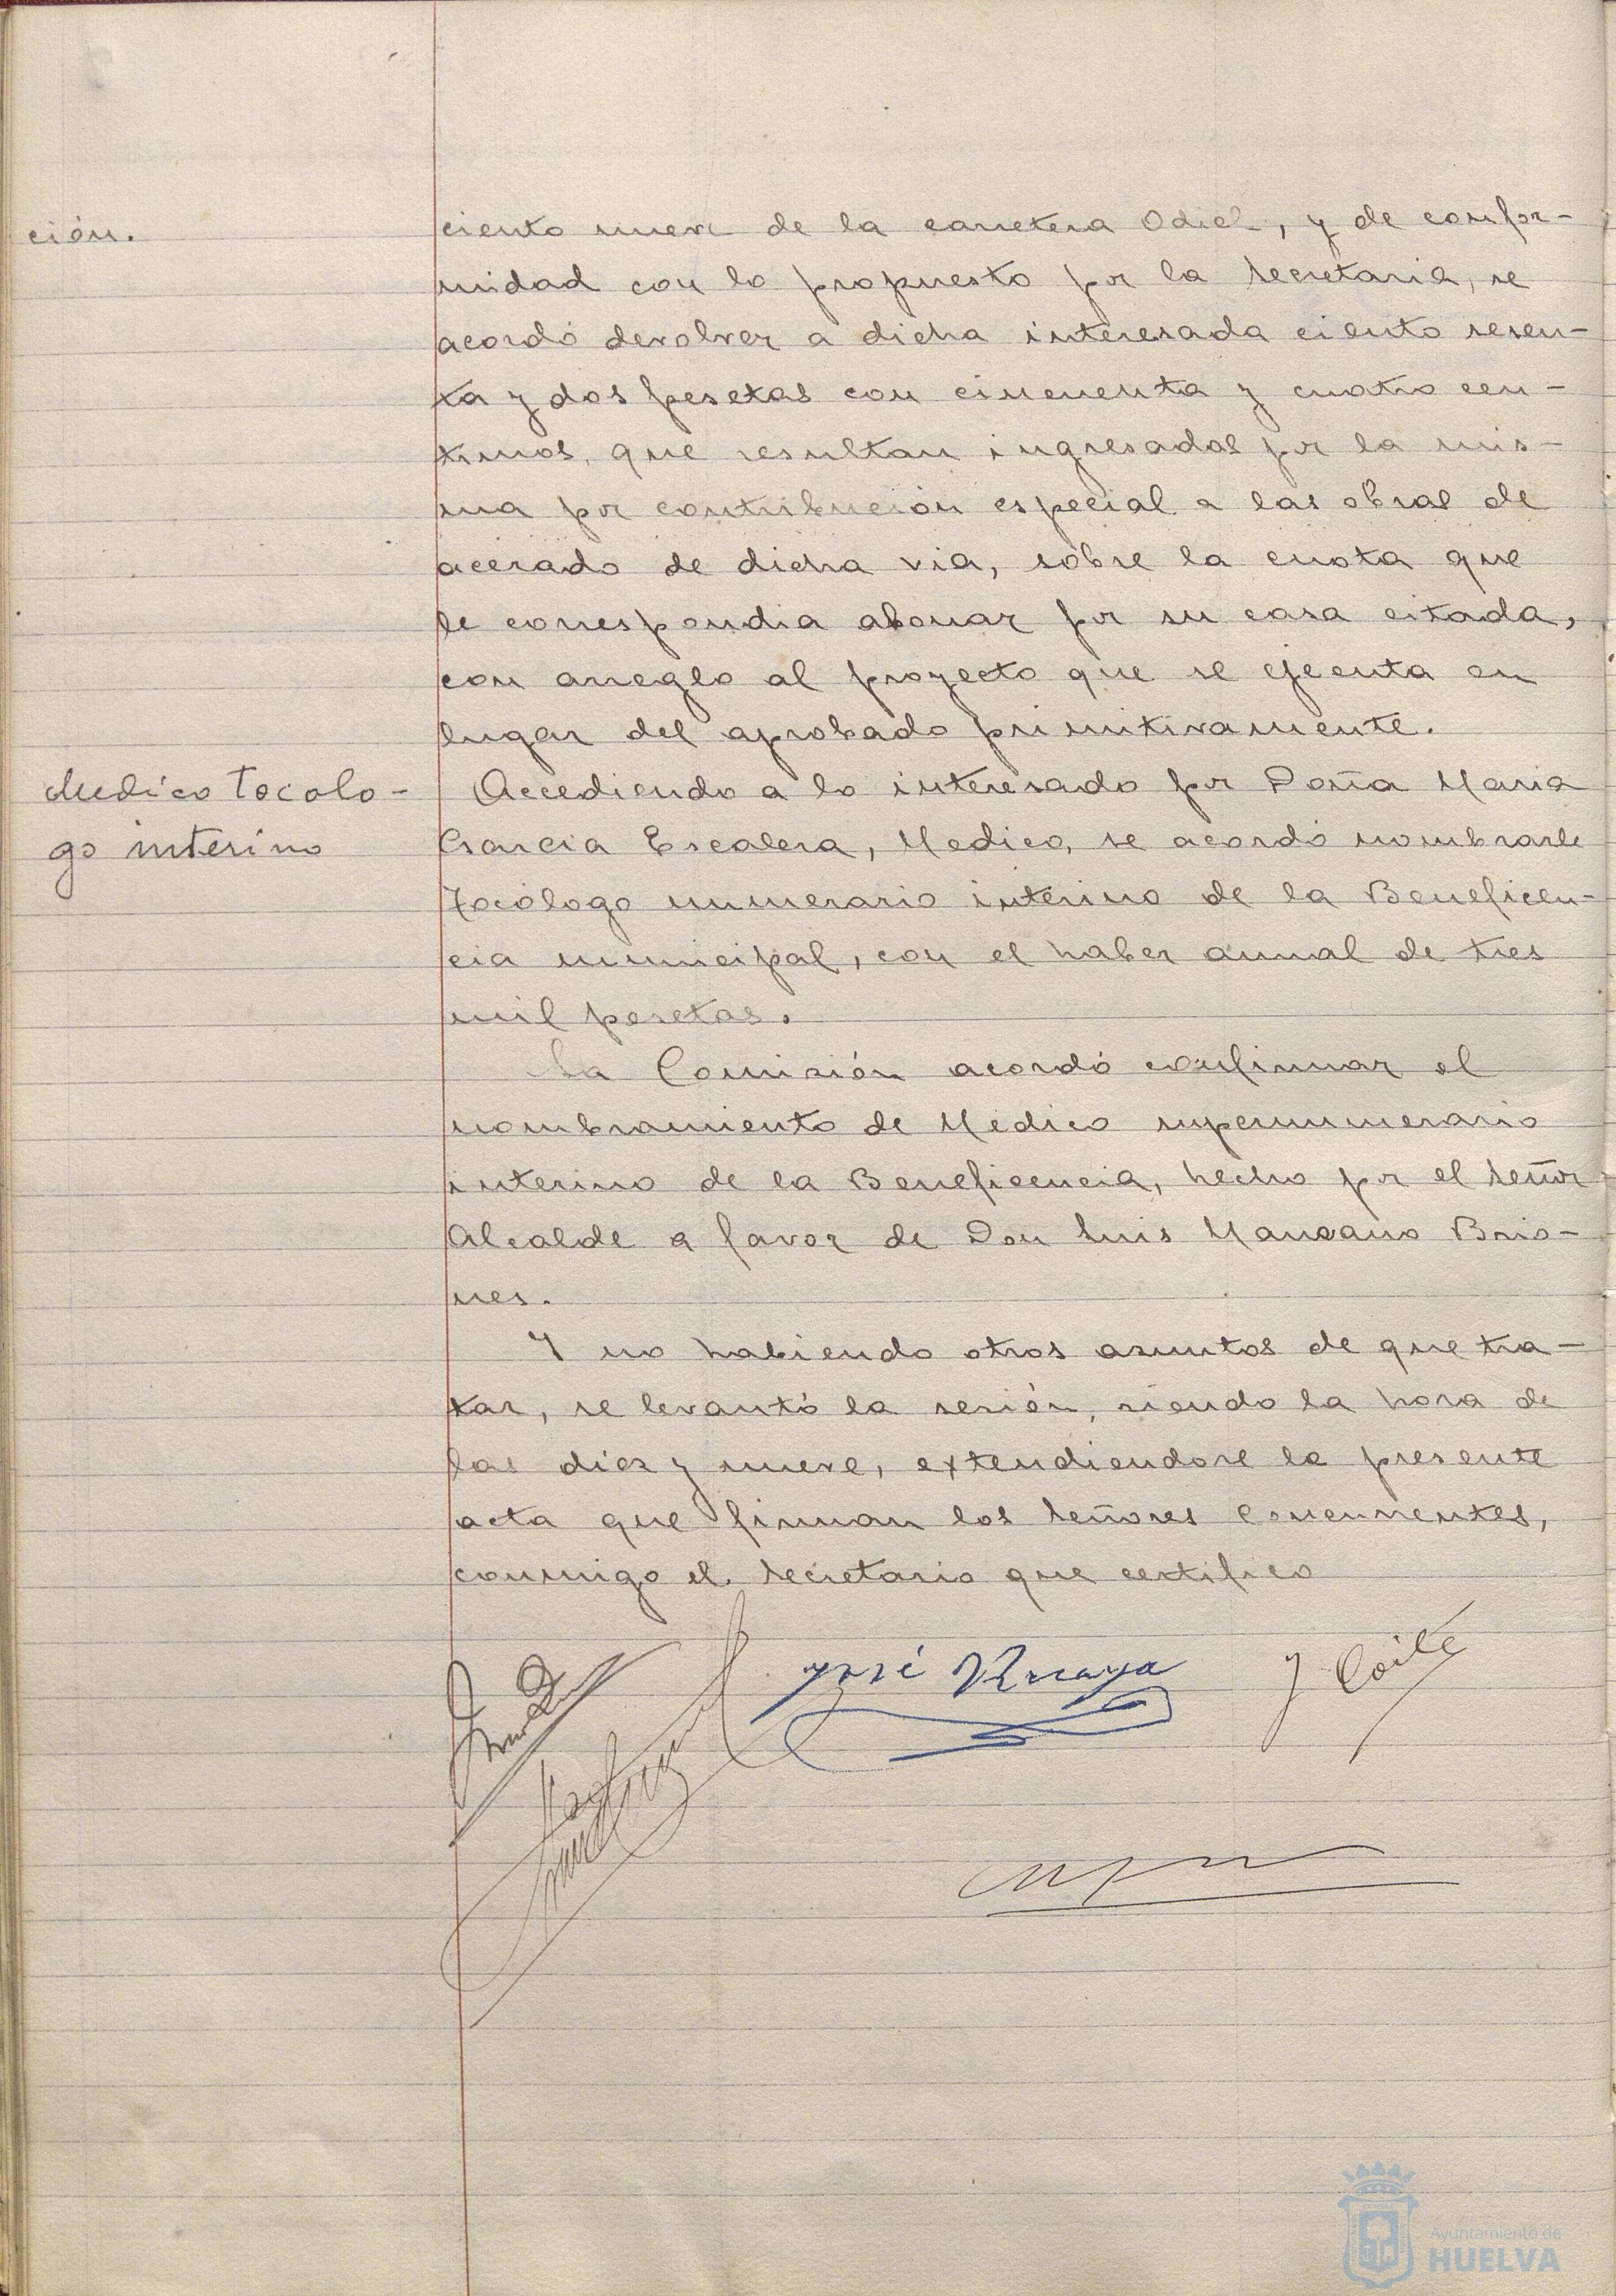 ción.
ciento nueve de la carretera Odiel, y de confor-
midad con lo propuesto por la Secretaria, se
acordó devolver a dicha interesada ciento sesen-
ta y dos pesetas con cincuenta y cuatro cen-
timos, que resultan ingresadas por la mis-
ma por contribución especial a las obras de
acerado de dicha via, sobre la cuota que
le correspondia abonar por su casa citada,
con arreglo al proyecto que se ejecuta en
lugar del aprobado primitivamente.
Medico Tocolo-
go interino
Accediendo a lo interesado por Doña Maria
Garcia Escalera, Medico, se acordó nombrarle
Tocólogo numerario interino de la Beneficen-
cia municipal, con el haber annal de tres
mil pesetas.
La Comisión acordó confirmar el
nombramiento de Medico supernumerario
interino de la Beneficencia, hecho por el señor
Alcalde a favor de Don Luis Manzano Brio-
nes.
Y no habiendo otros asuntos de que tra-
tar, se levantó la sesión, siendo la hora de
las diez y nueve, extendiendose la presente
acta que firman los señores concurrentes,
conmigo el Secretario que certifico
José
J
Ayuntamiento de
HUELVA